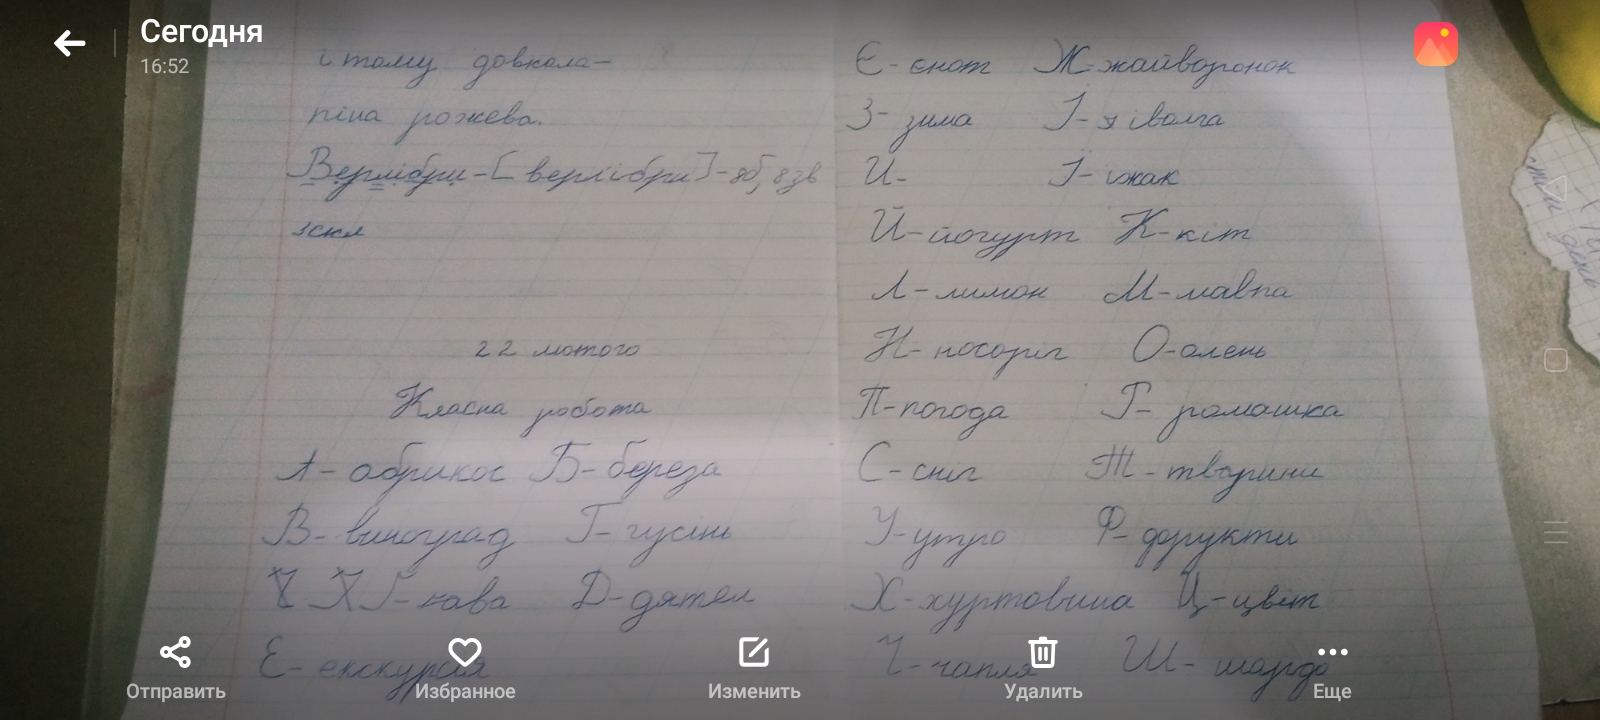 Сегодня
16:52
і тому довкола-
піна рожева.
Верлібри-[верлібри]-8б, 8зв
3скл
22 лютого
Класна робота
А- абрикос Б- береза
В- виноград Г- гусінь
Ґ-ґава Д-дятел
Е- екскурсія
Є- єнот Ж-жайворонок
З- зима І- іволга
И- Ї- їжак
Й-йогурт К-кіт
Л- лимон М-мавпа
Н- носоріг О-олень
П-погода Р- ромашка
С-сніг Т-тварини
У-утро Ф- фрукти
Х-хуртовина Ц-цвіт
Ч- чапля Ш- шарф
Отправить Избранное Изменить Удалить Еще